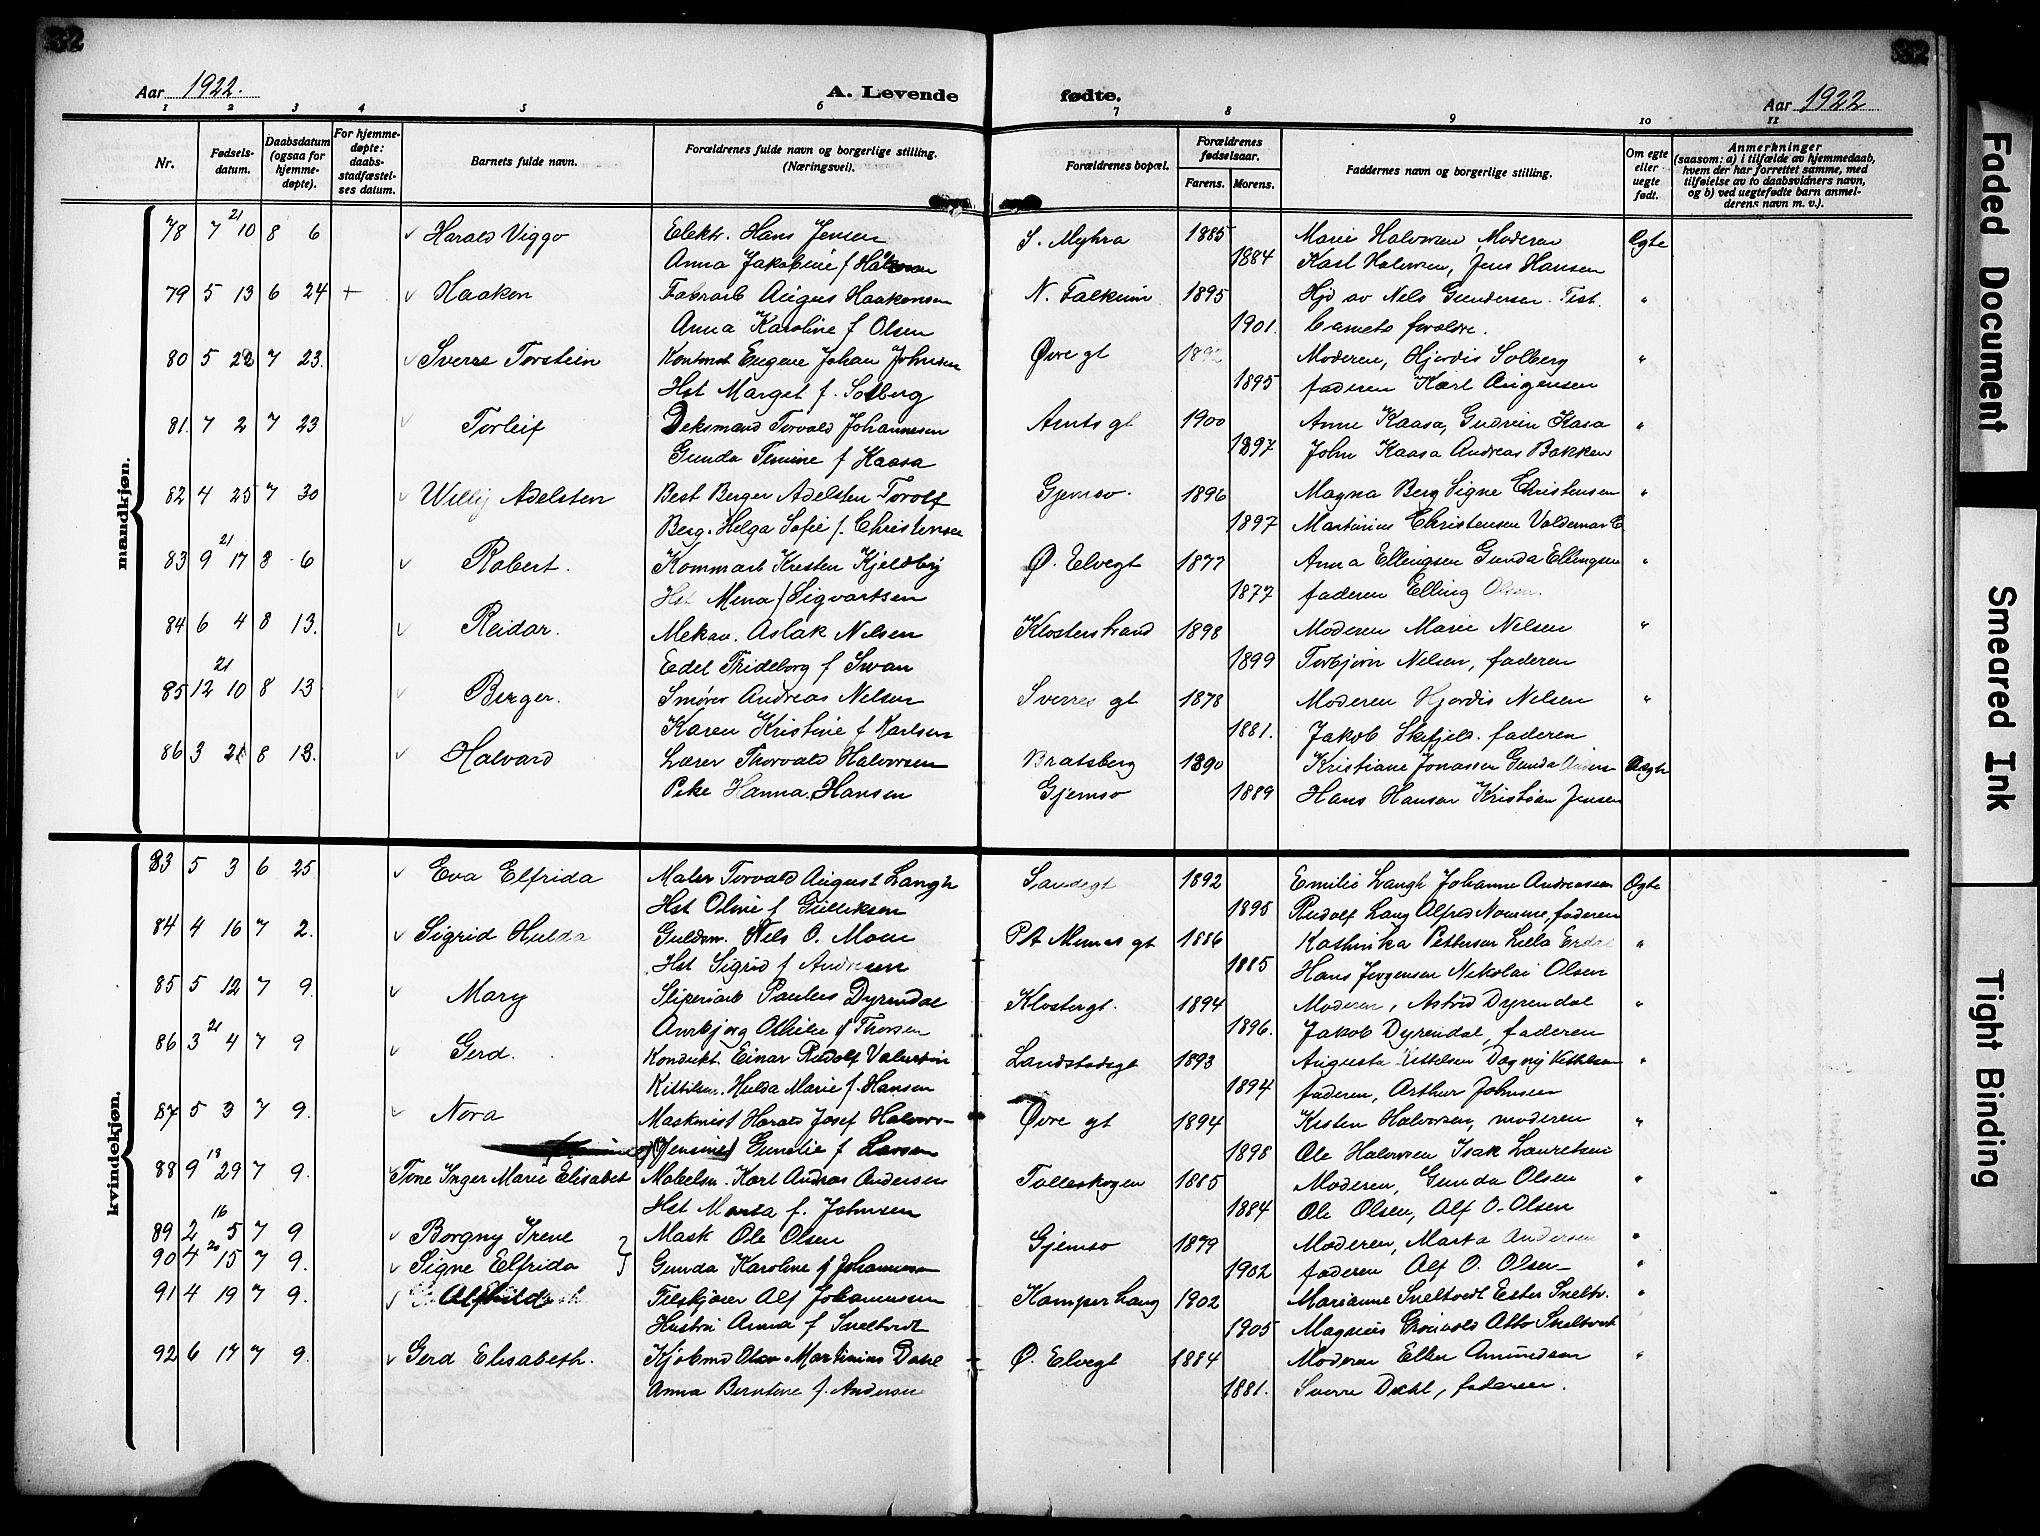 32 32
Aar 1922. A. Levende fødte. Aar 1922
1 2 3 4 5 6 7 8 9 10 11
Nr. Fødselsdatum. Daabsdatum (ogsaa for hjemmedøpte). For hjemmedøpte: daabsstadfæstelses datum. Barnets fulde navn. Forældrenes fulde navn og borgerlige stilling. (Næringsvei). Forældrenes bopæl. Forældrenes fødselsaar. Farens. Morens. Faddernes navn og borgerlige stilling. Om egte eller uegte født. Anmerkninger (saasom: a) i tilfælde av hjemmedaab, hvem der har forrettet samme, med tilføielse av to daabsvidners navn, og b) ved uegtefødte barn anmelderens navn m. v.).
mandkjøn.
78 7 21 10 8 6 Harald Viggo Elektr. Hans Jensen S. Myhra 1885 Marie Halvorsen, Moderen Egte
Anna Jakobine f 1884 Karl Halvorsen, Jens Hansen
79 5 13 6 24 + Haakon Fabrarb August Haakonsen N. Falkum 1895 Hjd av Nels Gundersen. Test. "
Anna Karoline f Olsen 1901. barnets forældre.
80 5 22 7 23. Sverre Torstein Kontmst Eugene Johan Johnsen Øvre gt 1892 Moderen, Hjørdis Solberg "
Hst Margit f. Solberg 1895 faderen Karl Augensen
81. 7 2 7 23 Torleif Deksmand Torvald Johannesen Amts gt 1900 Anne Kaasa, Gudrun Kasa "
Gunda Temine f Kaasa 1897 John Kaasa Andreas Bakken
82 4 25 7 30 Willy Adelsten Best Berger Adelsten Torolf Gjemsø. 1896 Magna Berg Signe Christensen "
Berg. Helga Sofie f. Christensen 1897 Martinius Christensen Valdemar C
83 9 21 17 8 6 Robert. Kommarb Kresten Kjeldby Ø. Elvegt 1877 Anna Ellingsen Gunda Ellingsen "
Hst Mena f Sigvartsen 1877 faderen Elling Olsen.
84 6 4 8 13. Reidar. Mekan. Aslak Nilsen Klosterstrand 1898 Moderen Marie Nilsen "
Edel Frideborg f Swan 1899 Torbjørn Nilsen, faderen
85 12 21 10 8 13 Berger. Smører Andreas Nelsen Sverres gt 1878 Moderen Hjørdis Nelsen "
Karen Kristine f Karlsen 1881. Jakob Skifjeld. faderen
86 3 21 8 13. Halvard Lærer Thorvald Halvorsen Bratsberg 1890 Kristiane Jonassen Gunda Anders Uegte
Pike Hanna Hansen Gjemsø 1889 Hans Hansen Kristian Jensen
kvindekjøn.
83 5 3 6 25 Eva Elfrida Maler Torvald August Langh Sandegt 1892 Emilie Langh Johanne Andreassen Egte
Hst Oline f Gulliksen 1895 Rudolf Lang Alfred Nomme, faderen
84 4 16 7 2. Sigrid Hulda Guldsm. Nels O. Moen PA Munchs gt 1886 Kathinka Pettersen Lilla "
Hst Sigrid f Andresen 1885 Hans Jørgensen Nikolai Olsen
85 5 12 7 9. Mary Sliperiarb Paulus Dyrendal Klostergt. 1894 Moderen, Astrid Dyrendal "
Aurbjørg Othilie f Thorsen 1896. Jakob Dyrendal, faderen
86 3 21 4 7 9 Gerd. Kondukt. Einar Rudolf Valentin Landstadsgt 1893 Augusta Kittilsen Dagny Kittilsen "
Kittilsen. Hulda Marie f. Hansen 1894 faderen, Arthur Johnsen
87 5 3 7 9. Nora Maskinist Harald Josef Halvors- Øvre gt 1894 Kirsten Halvorsen, moderen "
(Jensine) Gunelie f Larsen 1898 Ole Halvorsen Isak Lauretsen
88 9 18 29 7 9. Tone Inger Marie Elisabet Møbelsn. Karl Andreas Andersen Folleskogen 1885 Moderen, Gunda Olsen "
Hst Marta f. Johnsen 1884 Ole Olsen, Alf O. Olsen
89 2 16 5 7 9 Borgny Irene Mask Ole Olsen Gjemsø 1879 Moderen, Marta Andersen "
90 4 20 15 7 9. Signe Elfrida Gunda Karoline f Johannesen 1902 faderen Alf O. Olsen "
91 4 19 7 9. Alfhild Filskjærer Alf Johannesen Kamperhaug 1902 Marianne Sneltvedt Ester Sneltv. "
Hustru Anna f Sneltvedt 1905 Magnus Gronvold Otto Sneltvedt
92 6 17 7 9. Gerd Elisabeth. Kjøbmd Olav Martinius Dahl Ø. Elvegt 1884 Moderen Ellen Amundsen "
Anna Berntine f. Andersen 1881. Sverre Dahl, faderen.
Faded Document
Smeared Ink
Tight Binding